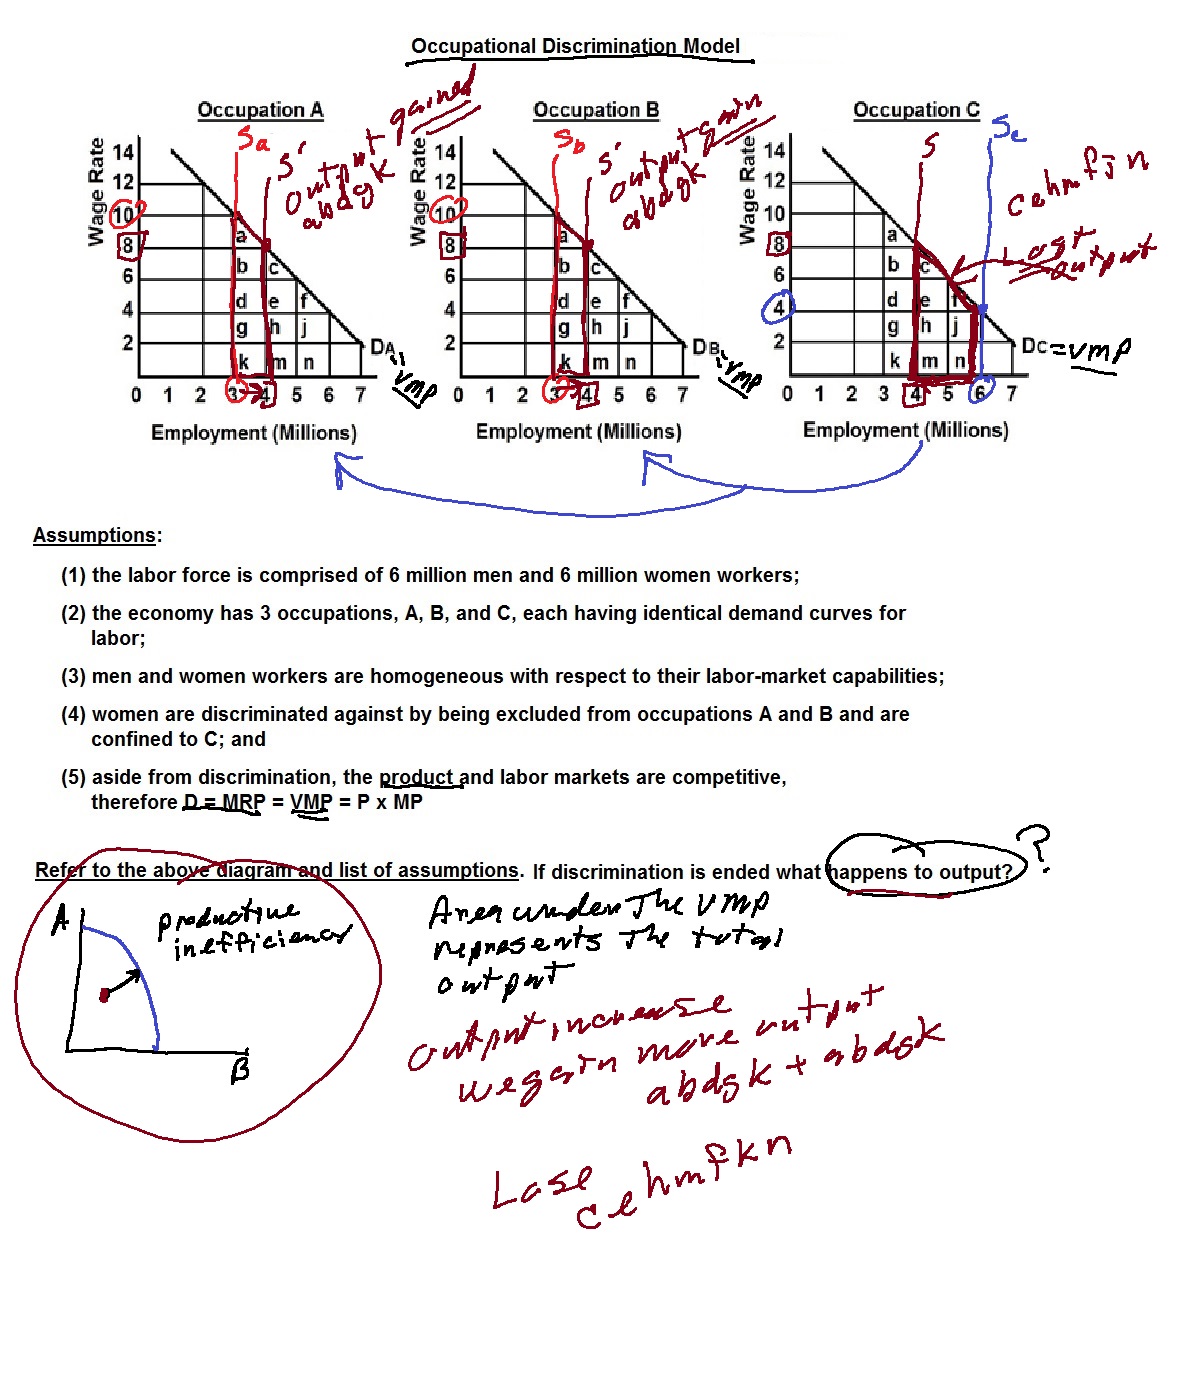 Occupational Discrimination Model
Occupation A
Occupation B
Occupation C
Sa
S'
output gained
abdgk
Sb
S'
output gain
abdgk
S
Sc
cehmfjn
Lost
output
Wage Rate
14
12
10
8
6
4
2
a
b c
d e f
g h j
k m n
DA
"
VMP
0 1 2 3 4 5 6 7
Employment (Millions)
Wage Rate
14
12
10
8
6
4
2
a
b c
d e f
g h j
k m n
DB
"
VMP
0 1 2 3 4 5 6 7
Employment (Millions)
Wage Rate
14
12
10
8
6
4
2
a
b c
d e f
g h j
k m n
Dc = VMP
0 1 2 3 4 5 6 7
Employment (Millions)
Assumptions:
(1) the labor force is comprised of 6 million men and 6 million women workers;
(2) the economy has 3 occupations, A, B, and C, each having identical demand curves for
labor;
(3) men and women workers are homogeneous with respect to their labor-market capabilities;
(4) women are discriminated against by being excluded from occupations A and B and are
confined to C; and
(5) aside from discrimination, the product and labor markets are competitive,
therefore D = MRP = VMP = P x MP
Refer to the above diagram and list of assumptions. If discrimination is ended what happens to output?
?
A
productive
inefficiency
B
Area under The VMP
represents The total
output
output increase
we gain more output
abdgk + abdgk
Lose
cehmfkn